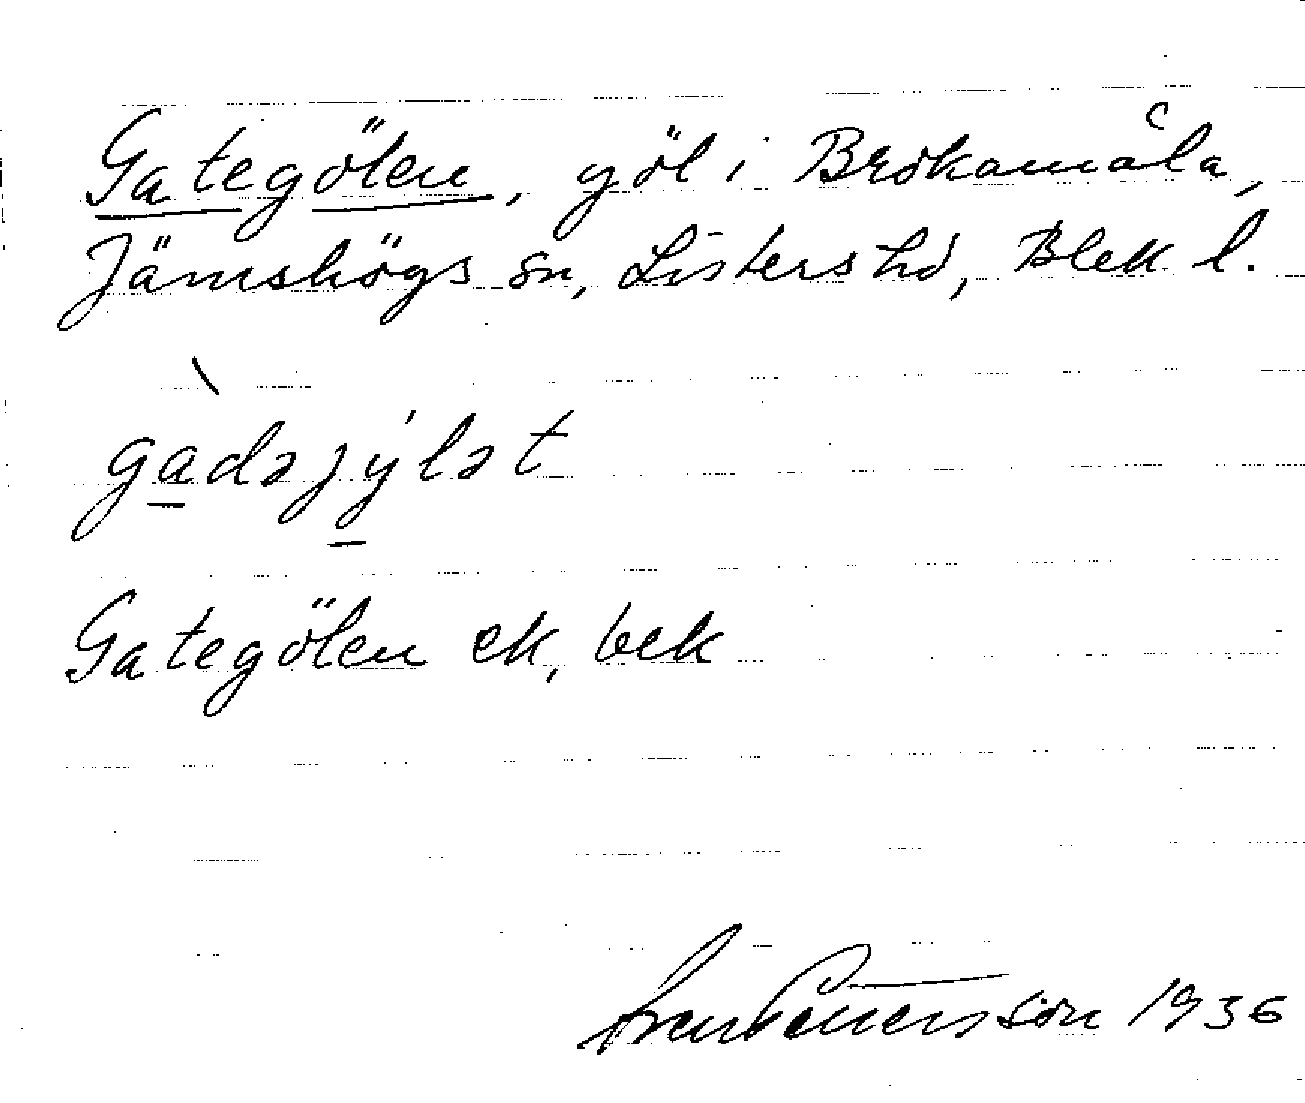 Gategölen, göl i Brokamåla,
Jämshögs sn, Listers hd, Blek l.
gàdəjýlət
Gategölen ek, bek
Sven Pettersson 1936